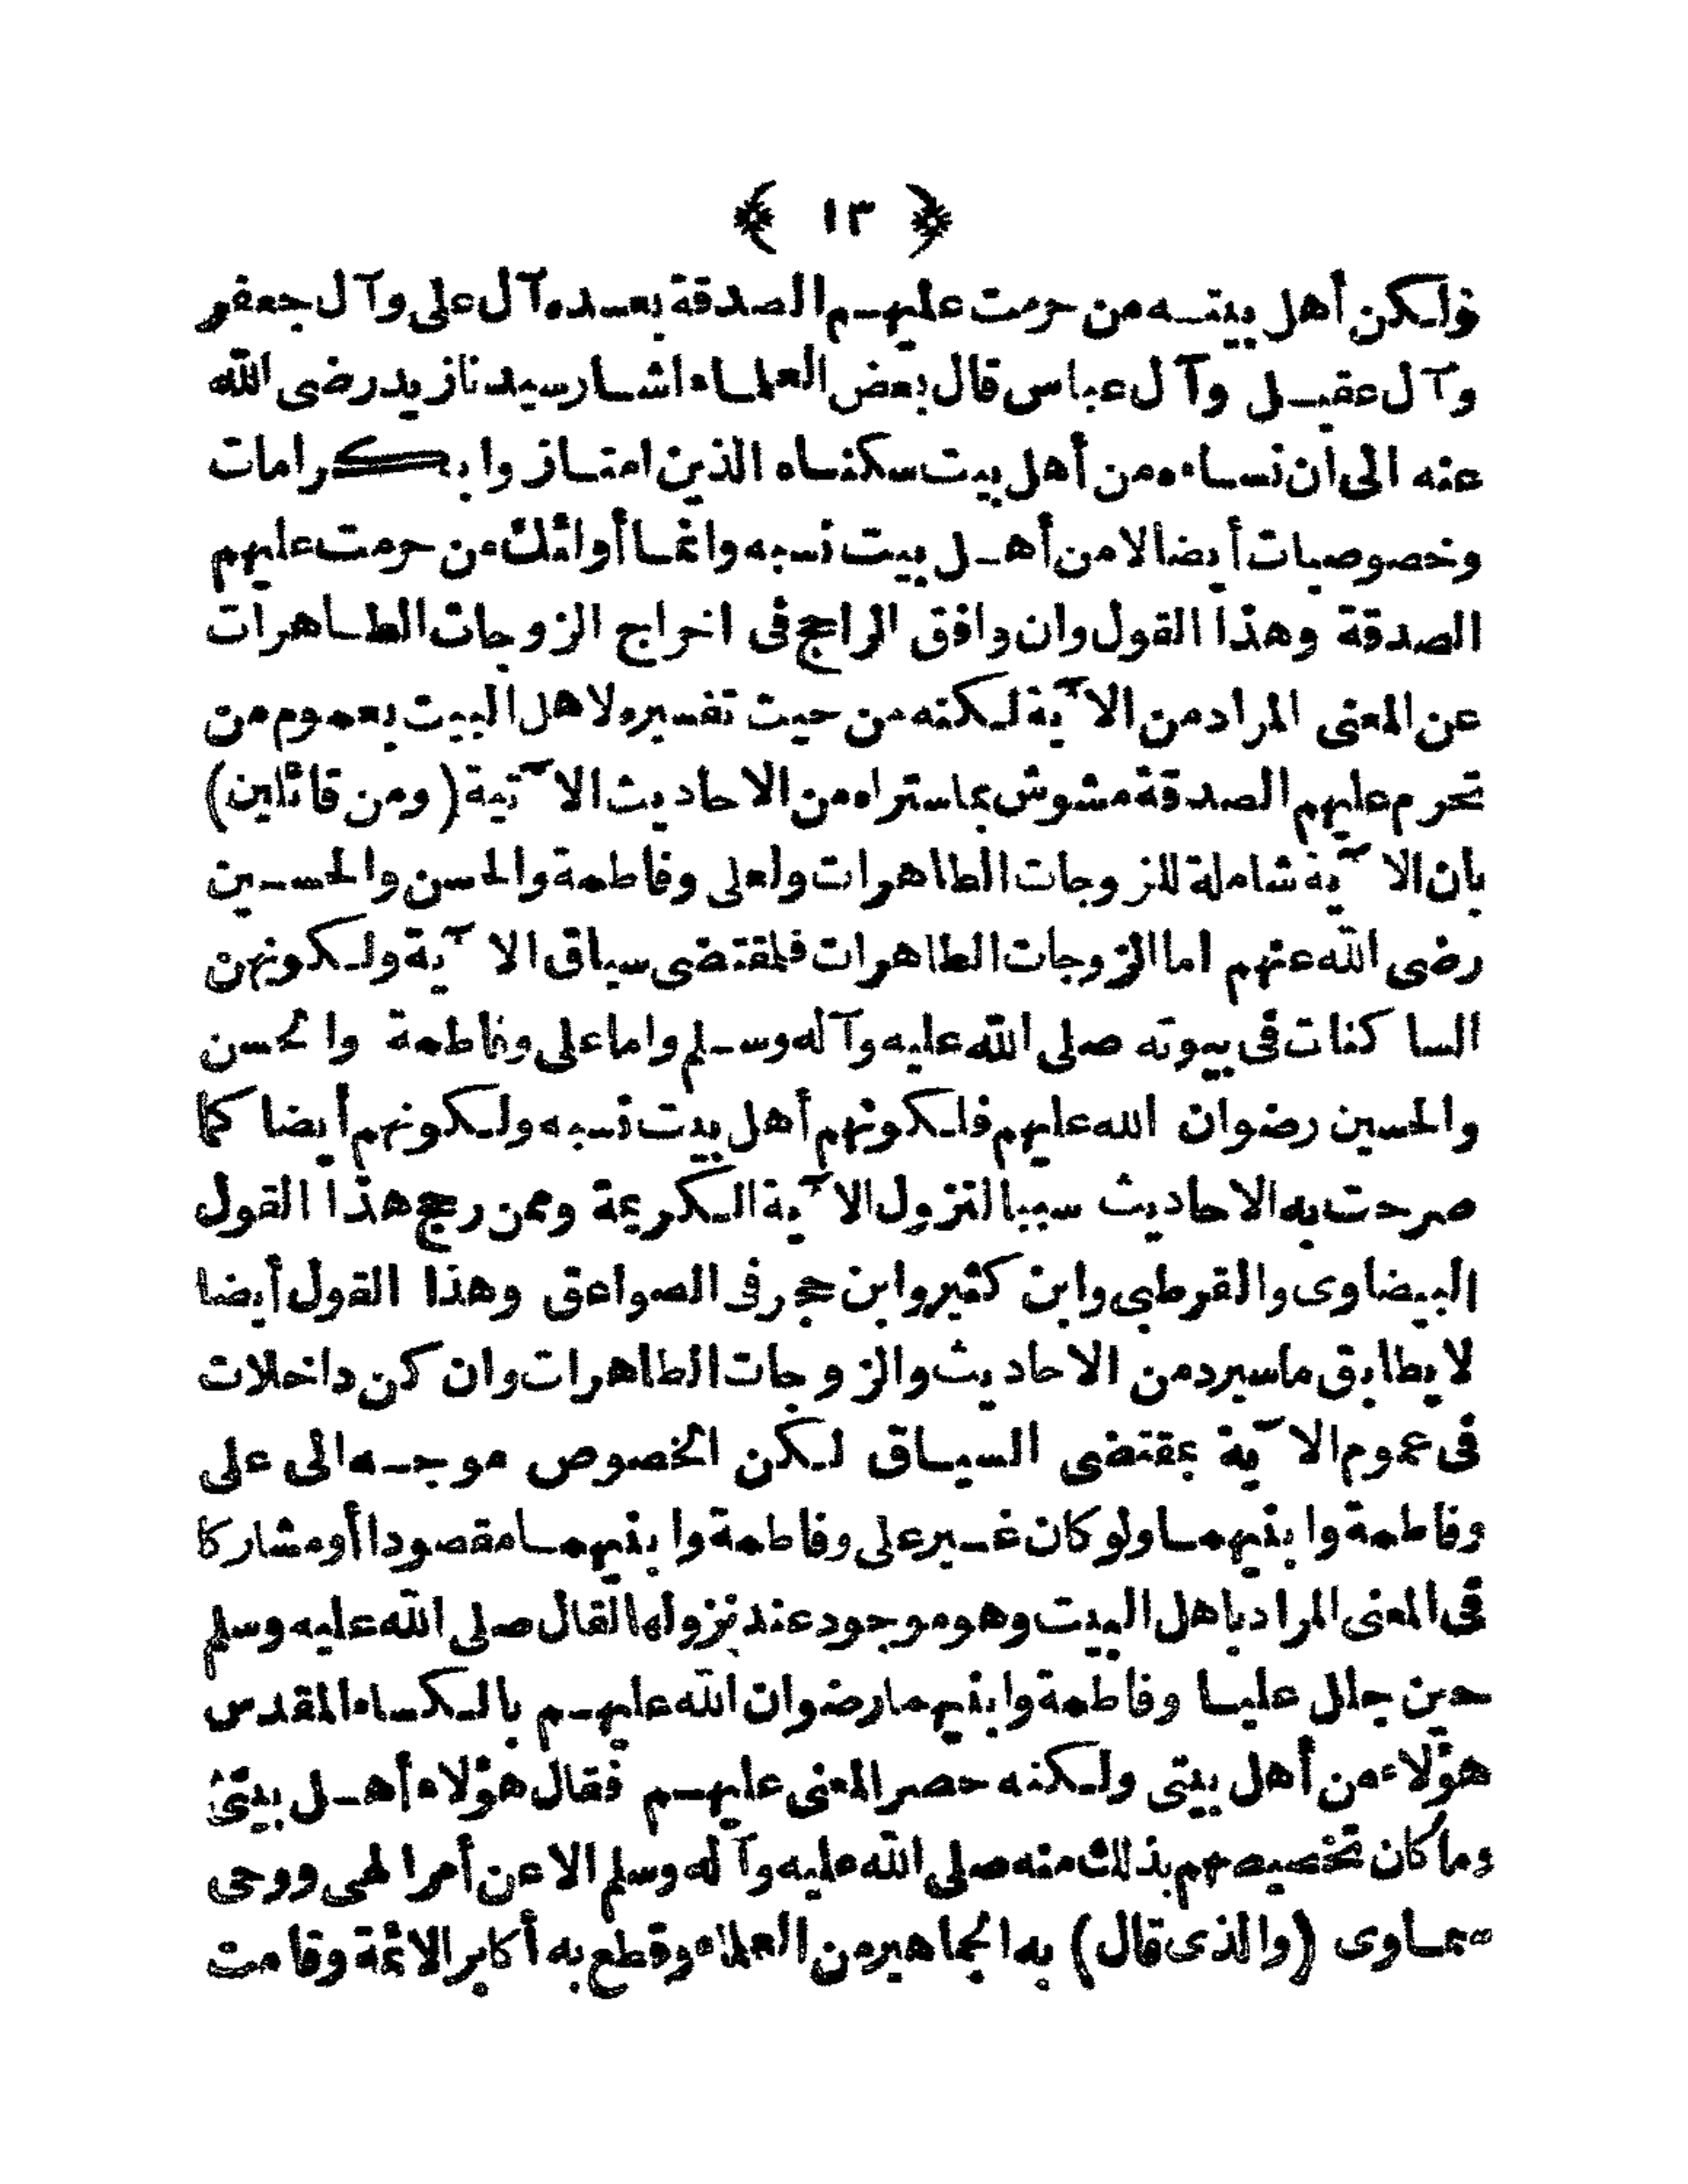 ﴿ ١٣ ﴾
ولكن أهل بيته من حرمت عليهم الصدقة بعده آل على وآل جعفر
وآل عقيل وآل عباس قال بعض العلماء اشار سيدنا زيد رضى الله
عنه الى ان نساءه من أهل بيت سكناه الذين امتازوا بكرامات
وخصوصيات أيضا لا من أهل بيت نسبه وانما أولئك من حرمت عليهم
الصدقة وهذا القول وان وافق الراجح فى اخراج الزوجات الطاهرات
عن المعنى المراد من الآية لكنه من حيث تفسيره لاهل البيت بعموم من
تحرم عليهم الصدقة مشوش بما ستراه من الاحاديث الآتية (ومن قائلين)
بان الآية شاملة للزوجات الطاهرات ولعلى وفاطمة والحسن والحسين
رضى الله عنهم اما الزوجات الطاهرات فلمقتضى سياق الآية ولكونهن
الساكنات فى بيوته صلى الله عليه وآله وسلم واما على وفاطمة والحسن
والحسين رضوان الله عليهم فلكونهم أهل بيت نسبه ولكونهم أيضا كما
صرحت به الاحاديث سببا لنزول الآية الكريمة وممن رجح هذا القول
البيضاوى والقرطبى وابن كثير وابن حجر فى الصواعق وهذا القول أيضا
لا يطابق ما سيرد من الاحاديث والزوجات الطاهرات وان كن داخلات
فى عموم الآية بمقتضى السياق لكن الخصوص موجه الى على
وفاطمة وابنيهما ولو كان غير على وفاطمة وابنيهما مقصودا أو مشاركا
فى المعنى المراد باهل البيت وهو موجود عند نزولها لقال صلى الله عليه وسلم
حين جلل عليا وفاطمة وابنيهما رضوان الله عليهم بالكساء المقدس
هؤلاء من أهل بيتى ولكنه حصر المعنى عليهم فقال هؤلاء أهل بيتى
وما كان تخصيصهم بذلك منه صلى الله عليه وآله وسلم الا عن أمر الهى ووحى
سماوى (والذى قال) به الجماهير من العلماء وقطع به أكابر الائمة وقامت